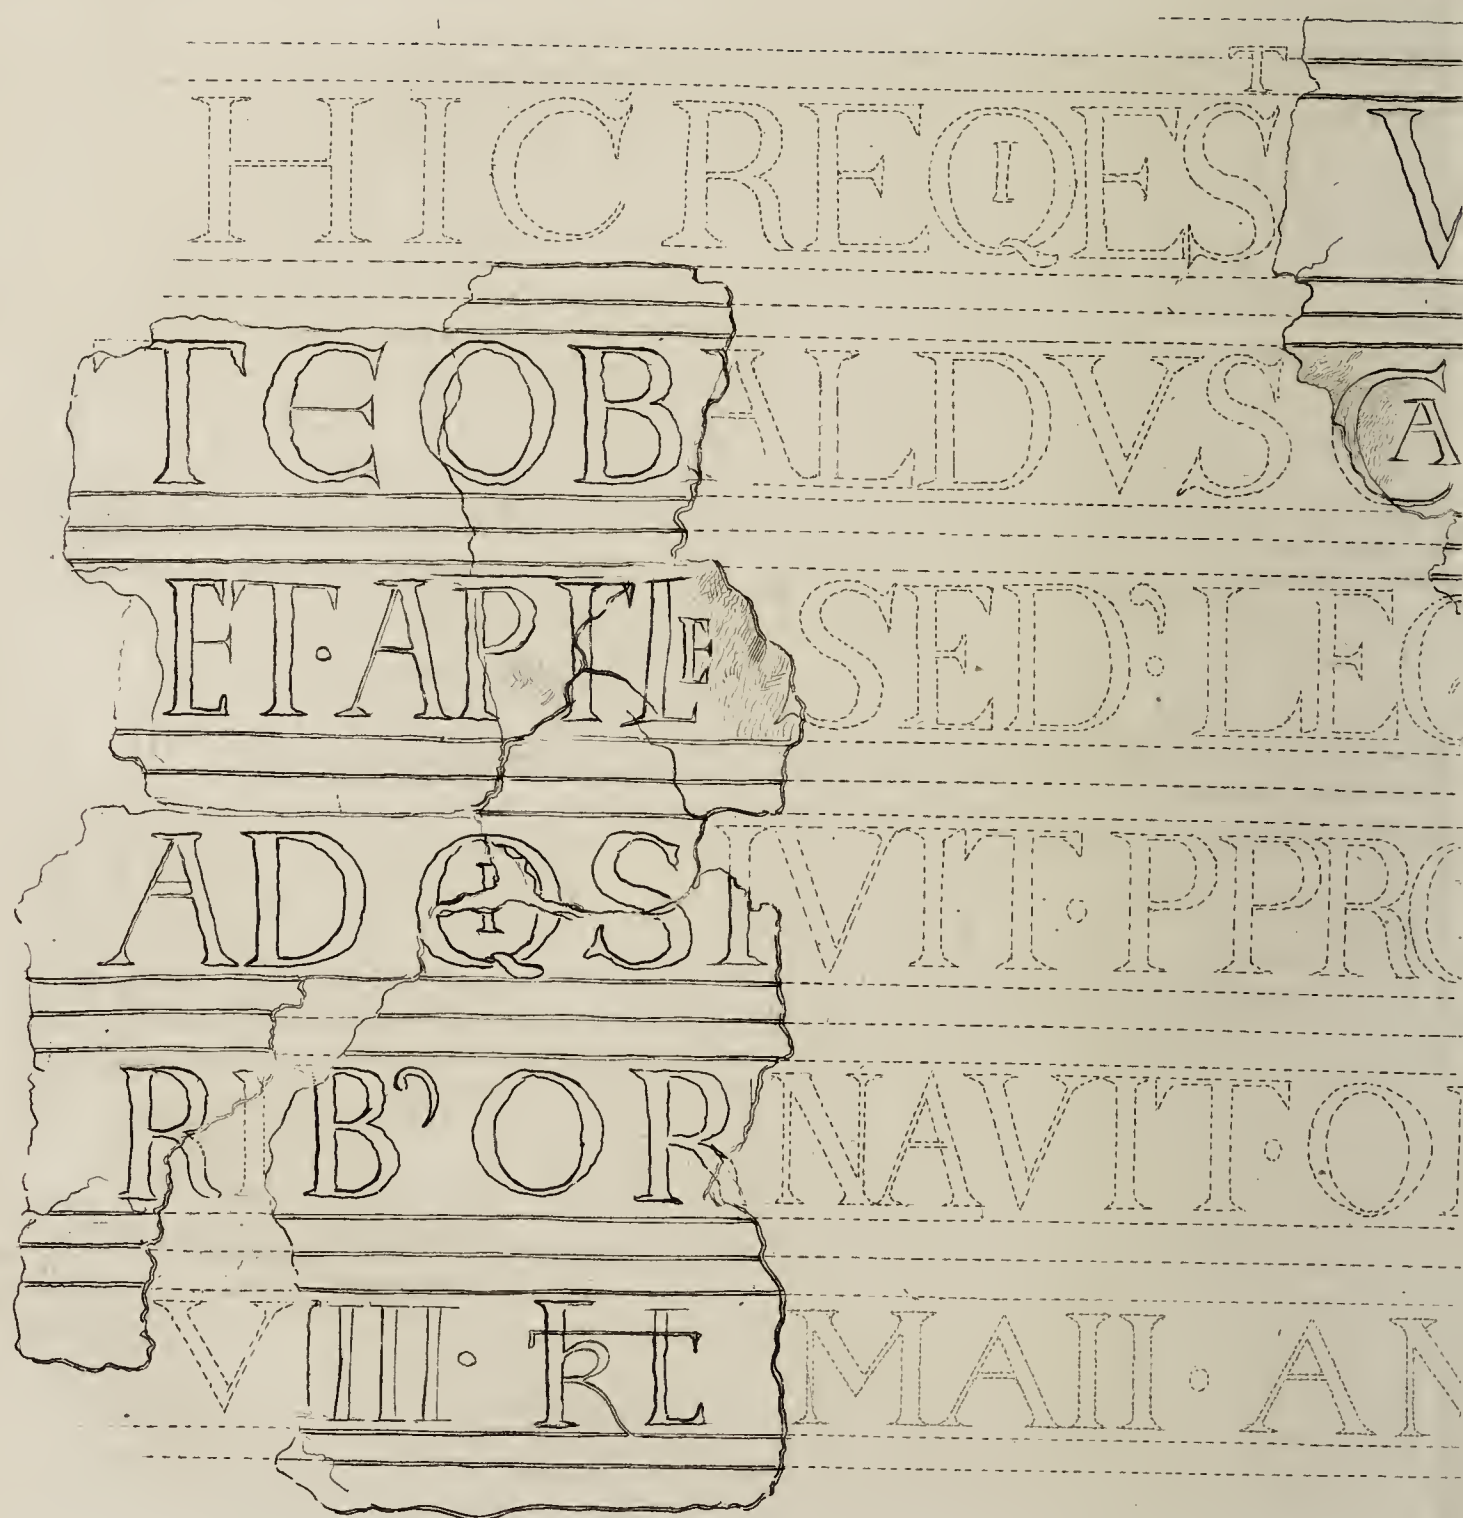 HIC REQIEST V
TEOBALDVS CA
ET·APTLE SED' LEC
ADQISIVIT·PPRO
RIB'ORNAVIT·O
VIII·KL MAII·AN